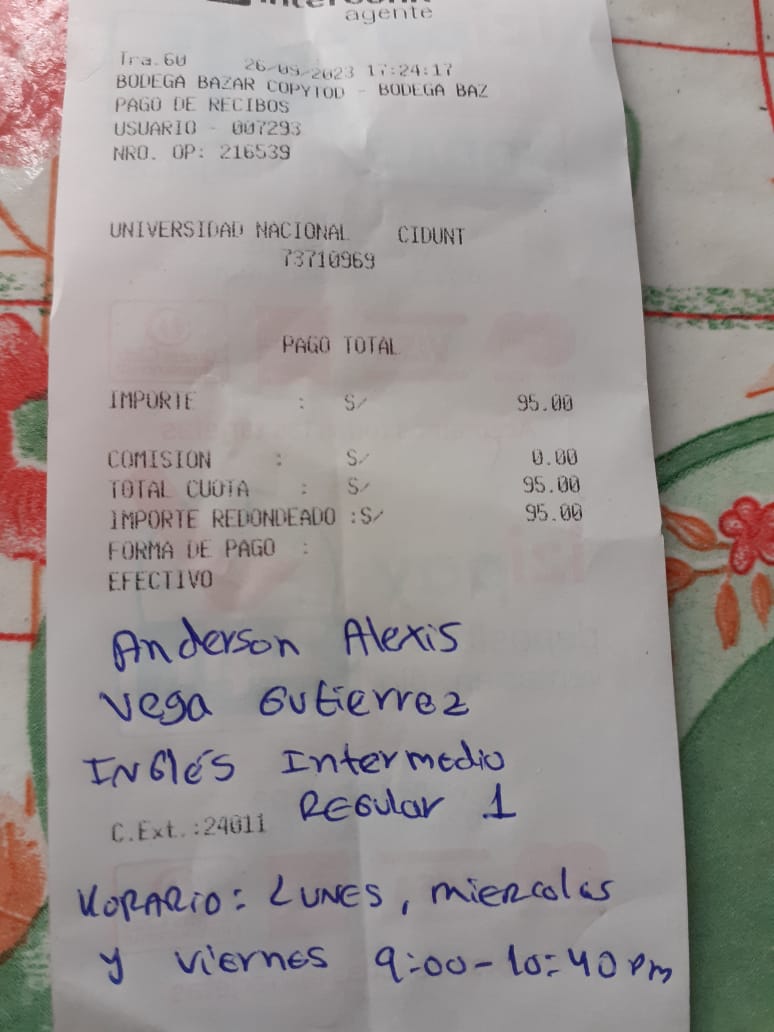 agente
Tra.60 26/09/2023 17:24:17
BODEGA BAZAR COPYTOD - BODEGA BAZ
PAGO DE RECIBOS
USUARIO - 007293
NRO. OP: 216539
UNIVERSIDAD NACIONAL CIDUNT
73710969
PAGO TOTAL
IMPORTE : S/ 95.00
COMISION : S/ 0.00
TOTAL CUOTA : S/ 95.00
IMPORTE REDONDEADO :S/ 95.00
FORMA DE PAGO :
EFECTIVO
Anderson Alexis
Vega Gutierrez
INGlés Intermedio
REGular 1
C.Ext.:24011
HORARIO: LUNES, miercoles
y viernes 9:00-10:40 pm